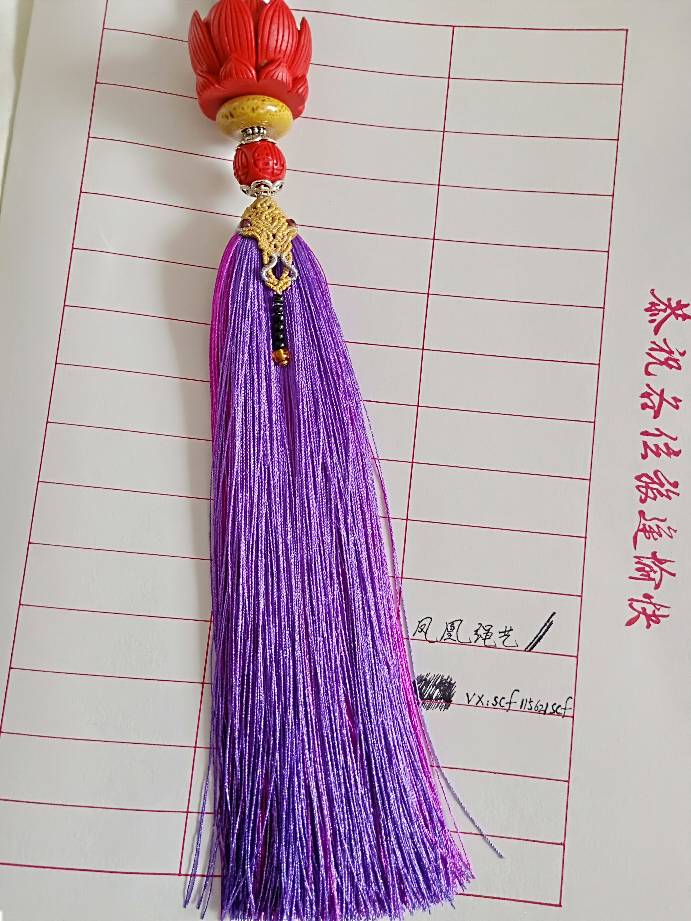 恭祝各位旅途愉快
凤凰绳艺
vx:scf115621scf